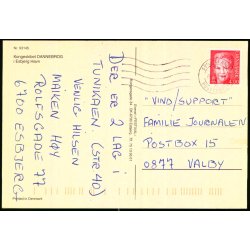 Nr. 93145
Kongeskibet DANNEBROG
i Esbjerg Havn
DER ER 2 LAG I
TUNIKAEN. (STR 40)
VENLIG HILSEN
MAIKEN HØY
ROLFSGADE 77
6700 ESBJERG
Printed in Denmark
"VIND/SUPPORT"
FAMILIE JOURNALEN
POSTBOX 15
0877 VALBY